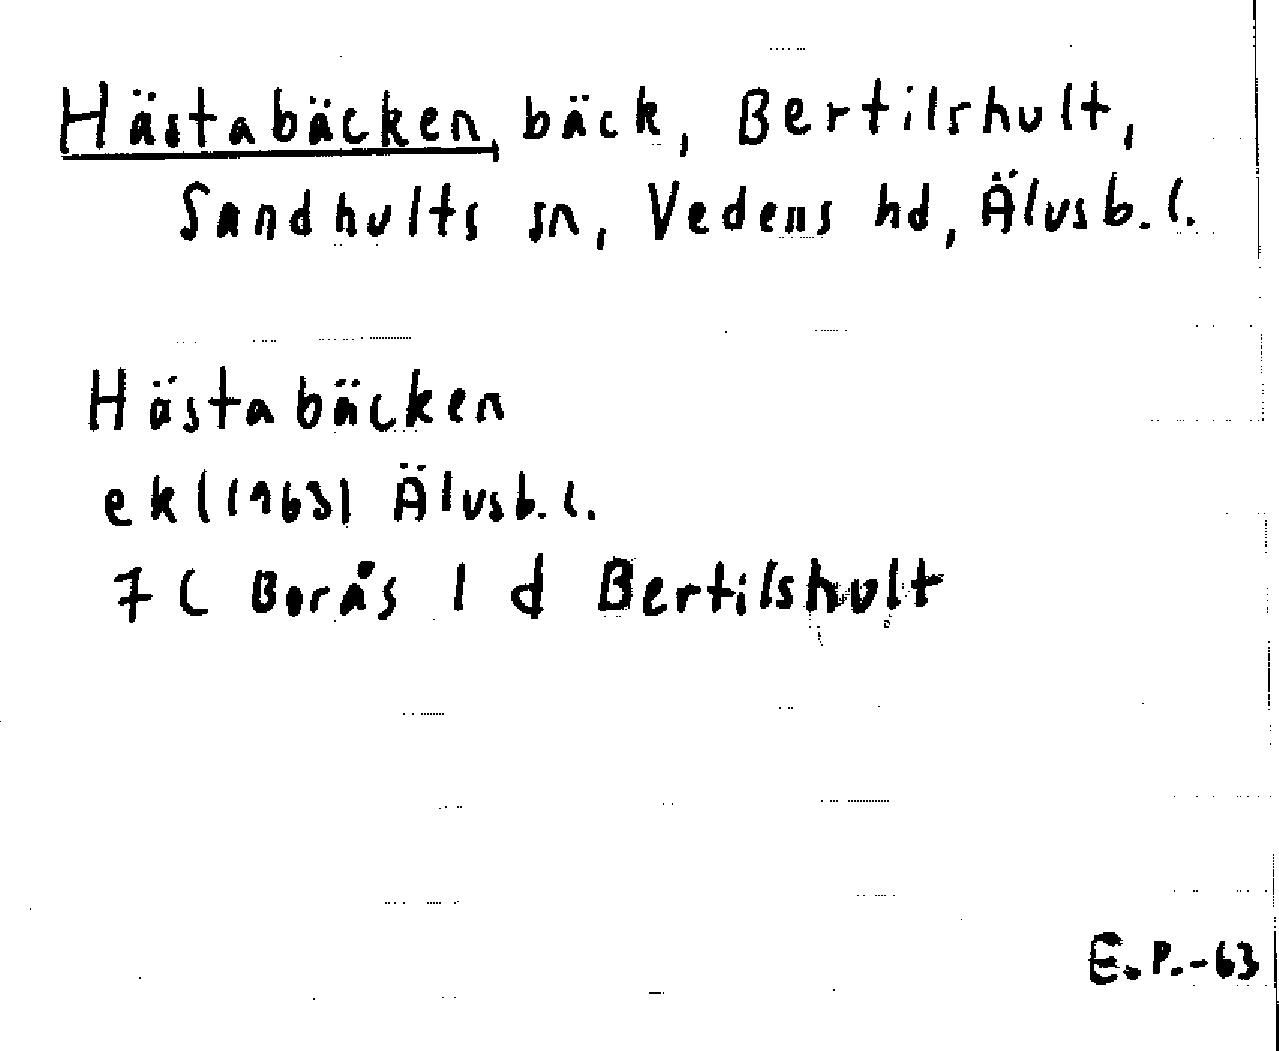 Hästabäcken, bäck, Bertilshult,
Sandhults sn, Vedens hd, Älvsb. l.
Hästabäcken
ekl(1963) Älvsb. l.
7 C Borås 1 d Bertilshult
E.P.-63